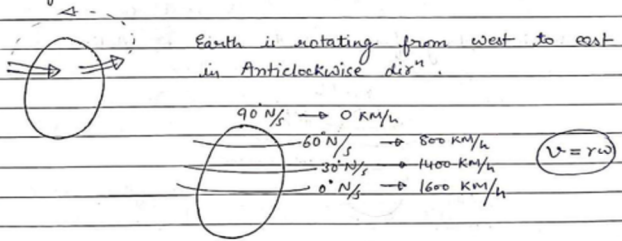 Earth is rotating from west to east
in Anticlockwise dirⁿ.
90°N/S → 0 KM/h
60°N/S → 800 KM/h
30°N/S → 1400 KM/h
0°N/S → 1600 KM/h
v = rω